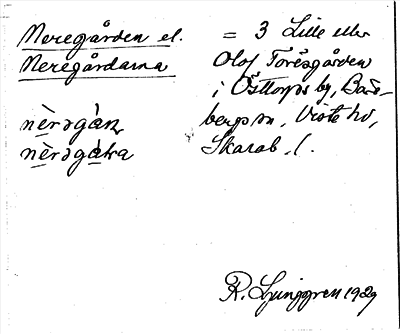 Neregården el. = 3 Lille eller
Neregårdarna Olof Toresgården
i Östtorps by, Bad-
nèrəgàn bergs sn, Viste hd,
nèrəgàṇa Skarab. l.
R. Ljunggren 1929